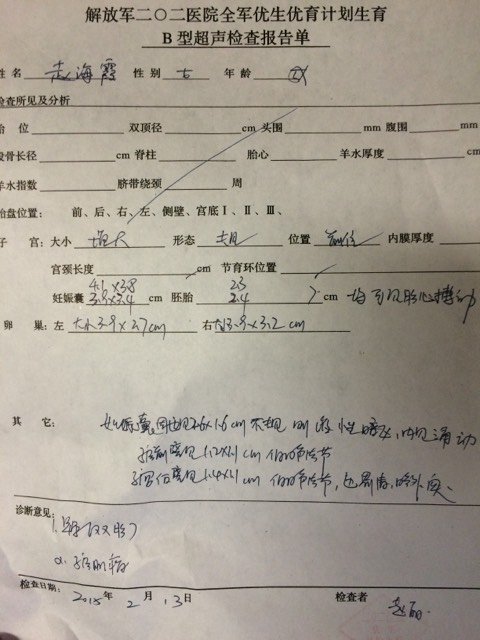 解放军二〇二医院全军优生优育计划生育
B 型超声检查报告单
姓名 赵海霞 性别 女 年龄
检查所见及分析
胎 位 双顶径 cm 头围 mm 腹围 mm
股骨长径 cm 脊柱 胎心 羊水厚度 cm
羊水指数 脐带绕颈 周
胎盘位置: 前、后、右、左、侧壁、宫底Ⅰ、Ⅱ、Ⅲ、
子 宫:大小 增大 形态 位置 前位 内膜厚度
宫颈长度 cm 节育环位置
4.1×3.8 2.3
妊娠囊 3.8×3.4 cm 胚胎 2.4 cm 均可见胎心搏动
卵 巢:左 大小3.9×2.7cm 右 大小3.8×3.2cm
其 它: 妊娠囊周边见2.6×1.6cm不规则液性暗区,内见涌动
子宫前壁见1.2×1.1cm低回声结节
子宫后壁见1.4×1.1cm低回声结节,边界清,略外突。
诊断意见:
1.早孕(双胎)
2.子宫肌瘤
检查日期: 2015年2月13日 检查者